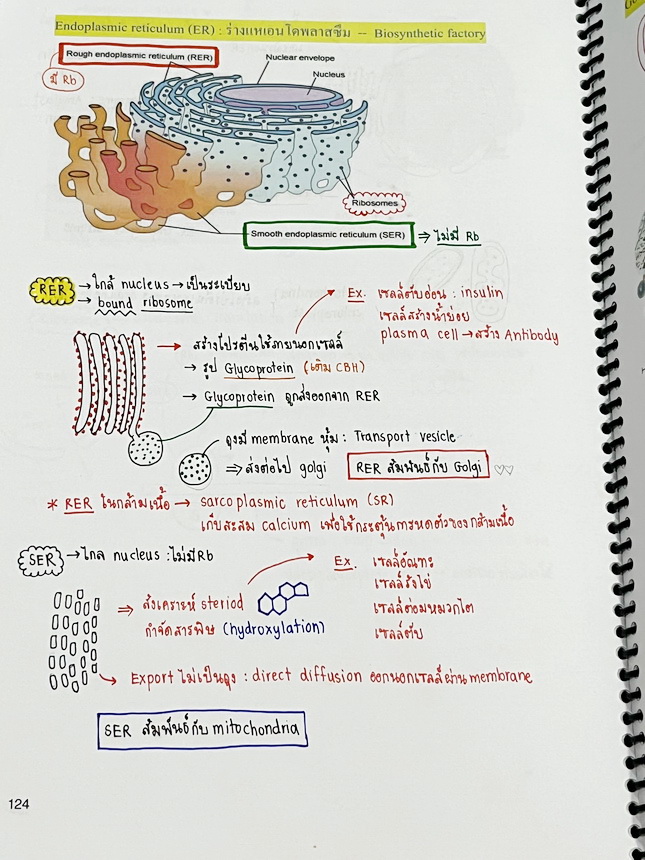 Endoplasmic reticulum (ER) : ร่างแหเอนโดพลาสซึม -- Biosynthetic factory
Rough endoplasmic reticulum (RER)
มี Rb
Nuclear envelope
Nucleus
Ribosomes
Smooth endoplasmic reticulum (SER) ⇒ ไม่มี Rb
RER → ใกล้ nucleus → เป็นระเบียบ
→ bound ribosome
→ สร้างโปรตีนใช้ภายนอกเซลล์
Ex. เซลล์ตับอ่อน : insulin
เซลล์สร้างน้ำย่อย
plasma cell → สร้าง Antibody
→ รูป Glycoprotein (เติม CBH)
→ Glycoprotein ถูกส่งออกจาก RER
ถุงมี membrane หุ้ม : Transport vesicle
⇒ ส่งต่อไป golgi
RER สัมพันธ์กับ Golgi ♡♡
* RER ในกล้ามเนื้อ → sarcoplasmic reticulum (SR)
เก็บสะสม calcium เพื่อใช้กระตุ้นการหดตัวของกล้ามเนื้อ
SER → ไกล nucleus : ไม่มี Rb
⇒ สังเคราะห์ steriod
กำจัดสารพิษ (hydroxylation)
Ex. เซลล์อัณฑะ
เซลล์รังไข่
เซลล์ต่อมหมวกไต
เซลล์ตับ
→ Export ไม่เป็นถุง : direct diffusion ออกนอกเซลล์ผ่าน membrane
SER สัมพันธ์กับ mitochondria
124